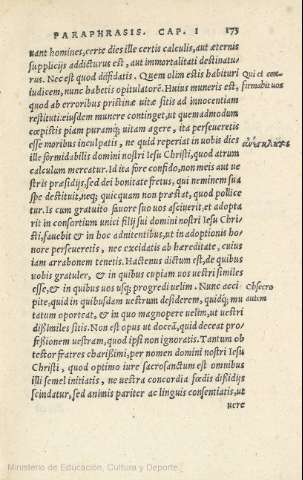 PARAPHRASIS. CAP. I 173
uant homines, certe dies ille certis calculis, aut æternis
supplicijs addicturus est, aut immortalitati destinatu-
rus. Nec est quod diffidatis. Quem olim estis habituri
iudicem, nunc habetis opitulatorẽ. Huius muneris est,
quod ab erroribus pristinæ uitæ sitis ad innocentiam
restituti: eiusdem munere continget, ut quemadmodum
cœpistis piam puramq́; uitam agere, ita perseueretis
esse moribus inculpatis, ne quid reperiat in uobis dies
ille formidabilis domini nostri Iesu Christi, quod atrum
calculum mereatur. Id ita fore confido, non meis aut ue
stris præsidijs, sed dei bonitate fretus, qui neminem sua
spe destituit, neq; quicquam non præstat, quod pollice
tur. Is cum gratuito fauore suo uos asciuerit, et adopta
rit in consortium unici filij sui domini nostri Iesu Chri-
sti, fauebit & in hoc adnitentibus, ut in adoptionis ho-
nore perseueretis, nec excidatis ab hæreditate, cuius
iam arrabonem tenetis. Hactenus dictum est, de quibus
uobis gratuler, & in quibus cupiam uos uestri similes
esse, & in quibus uos usq; progredi uelim. Nunc acci-
pite, quid in quibusdam uestrum desiderem, quidq́; mu
tatum oporteat, & in quo magnopere uelim, ut uestri
dißimiles sitis. Non est opus ut doceã, quid deceat pro-
feßionem uestram, quod ipsi non ignoratis. Tantum ob
testor fratres charißimi, per nomen domini nostri Iesu
Christi, quod optimo iure sacrosanctum est omnibus
illi semel initiatis, ne uestra concordia fœdis dißidijs
scindatur, sed animis pariter ac linguis consentiatis, ut
uere
Qui et con-
firmabit uos
Obsecro
autem
Ministerio de Educación, Cultura y Deporte